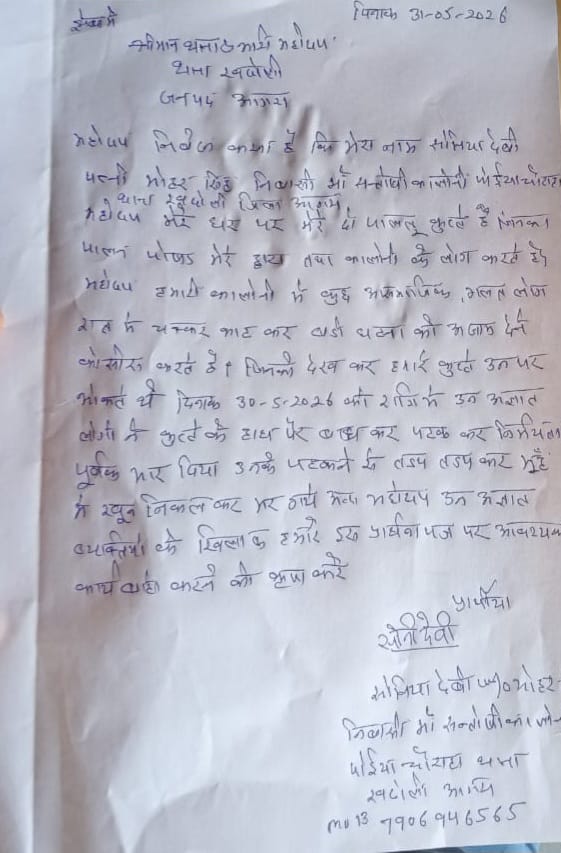 सेवा मे दिनाक 31-05-2026
श्रीमान थानाध्यक्ष महोदय
थाना खंदोली
जनपद आगरा
महोदय निवेदन करना है कि मेरा नाम सोनिया देवी
पत्नी मोहर सिंह निवासी माँ सन्तोषी कालोनी पोईया चौराहा
थाना खंदोली जिला आगरा
महोदय मेरे घर पर मेरे दो पालतू कुत्ते है जिनका
पालन पोषण मेरे द्वारा तथा कालोनी के लोग करते है
महोदय हमारी कालोनी मे कुछ असामाजिक गलत लोग
रात मे चक्कर काट कर बडी घटना को अंजाम देने
कोसीस करते है। जिनको देख कर हमारे कुत्ते उन पर
भोकते थे दिनाक 30-5-2026 की रात्रि मे उन अज्ञात
लोगो ने कुत्ते के हाथ पैर बाध कर पटक कर निर्मयता
पूर्वक मार दिया उनके पटकने से तडप तडप कर मुँह
से खून निकल कर मर गये अतः महोदय उन अज्ञात
व्यक्तियो के खिलाफ हमारे इस प्रार्थना पत्र पर आवश्यक
कार्यवाही करने की कृपा करे
प्रार्थीया
सोनी देवी
सोनिया देवी w/o मोहर
निवासी माँ सन्तोषी कालो
पोईया चौराहा थाना
खंदोली आगरा
7906946565